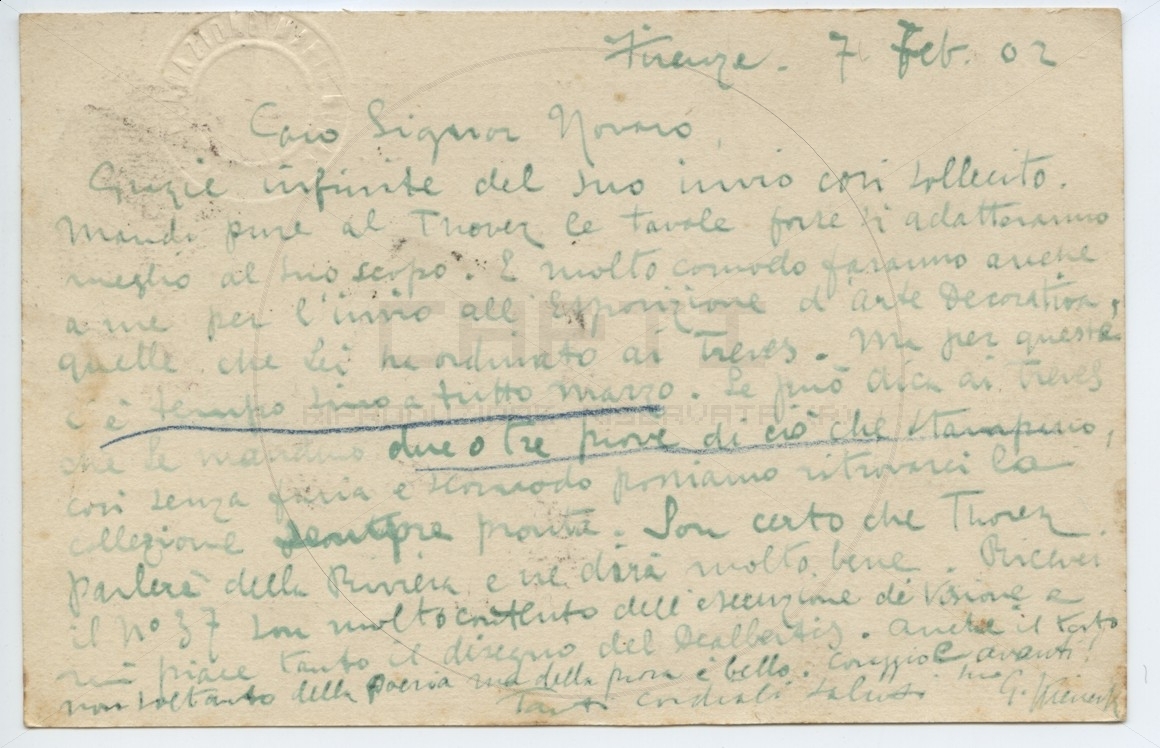 Firenze. 7 Feb. 02
Caro Signor Novaro
Grazie infinite del suo invio così sollecito.
Mandi pure al Thovez le tavole forse si adatteranno
meglio al suo scopo. E molto comodo faranno anche
a me per l'invio all Esposizione d'Arte Decorativa,
quelle che Lei ha ordinato ai Treves. Ma per queste
c'è tempo sino a tutto marzo. Se può dica ai Treves
che Le mandino due o tre prove di ciò che stampano,
così senza furia e scomodo possiamo ritrovarci la
collezione sempre pronta. Son certo che Thovez
parlerà della Riviera e ne dirà molto bene. Ricevei
il No 37 Son molto contento dell'esecuzione di Visione e
mi piace tanto il disegno del Dealbertis. Anche il testo
non soltanto della poesia ma della prosa è bello. Coraggio e avanti.
Tanti cordiali saluti suo G. Kienerk
CAPTI
RIPRODUZIONE RISERVATA